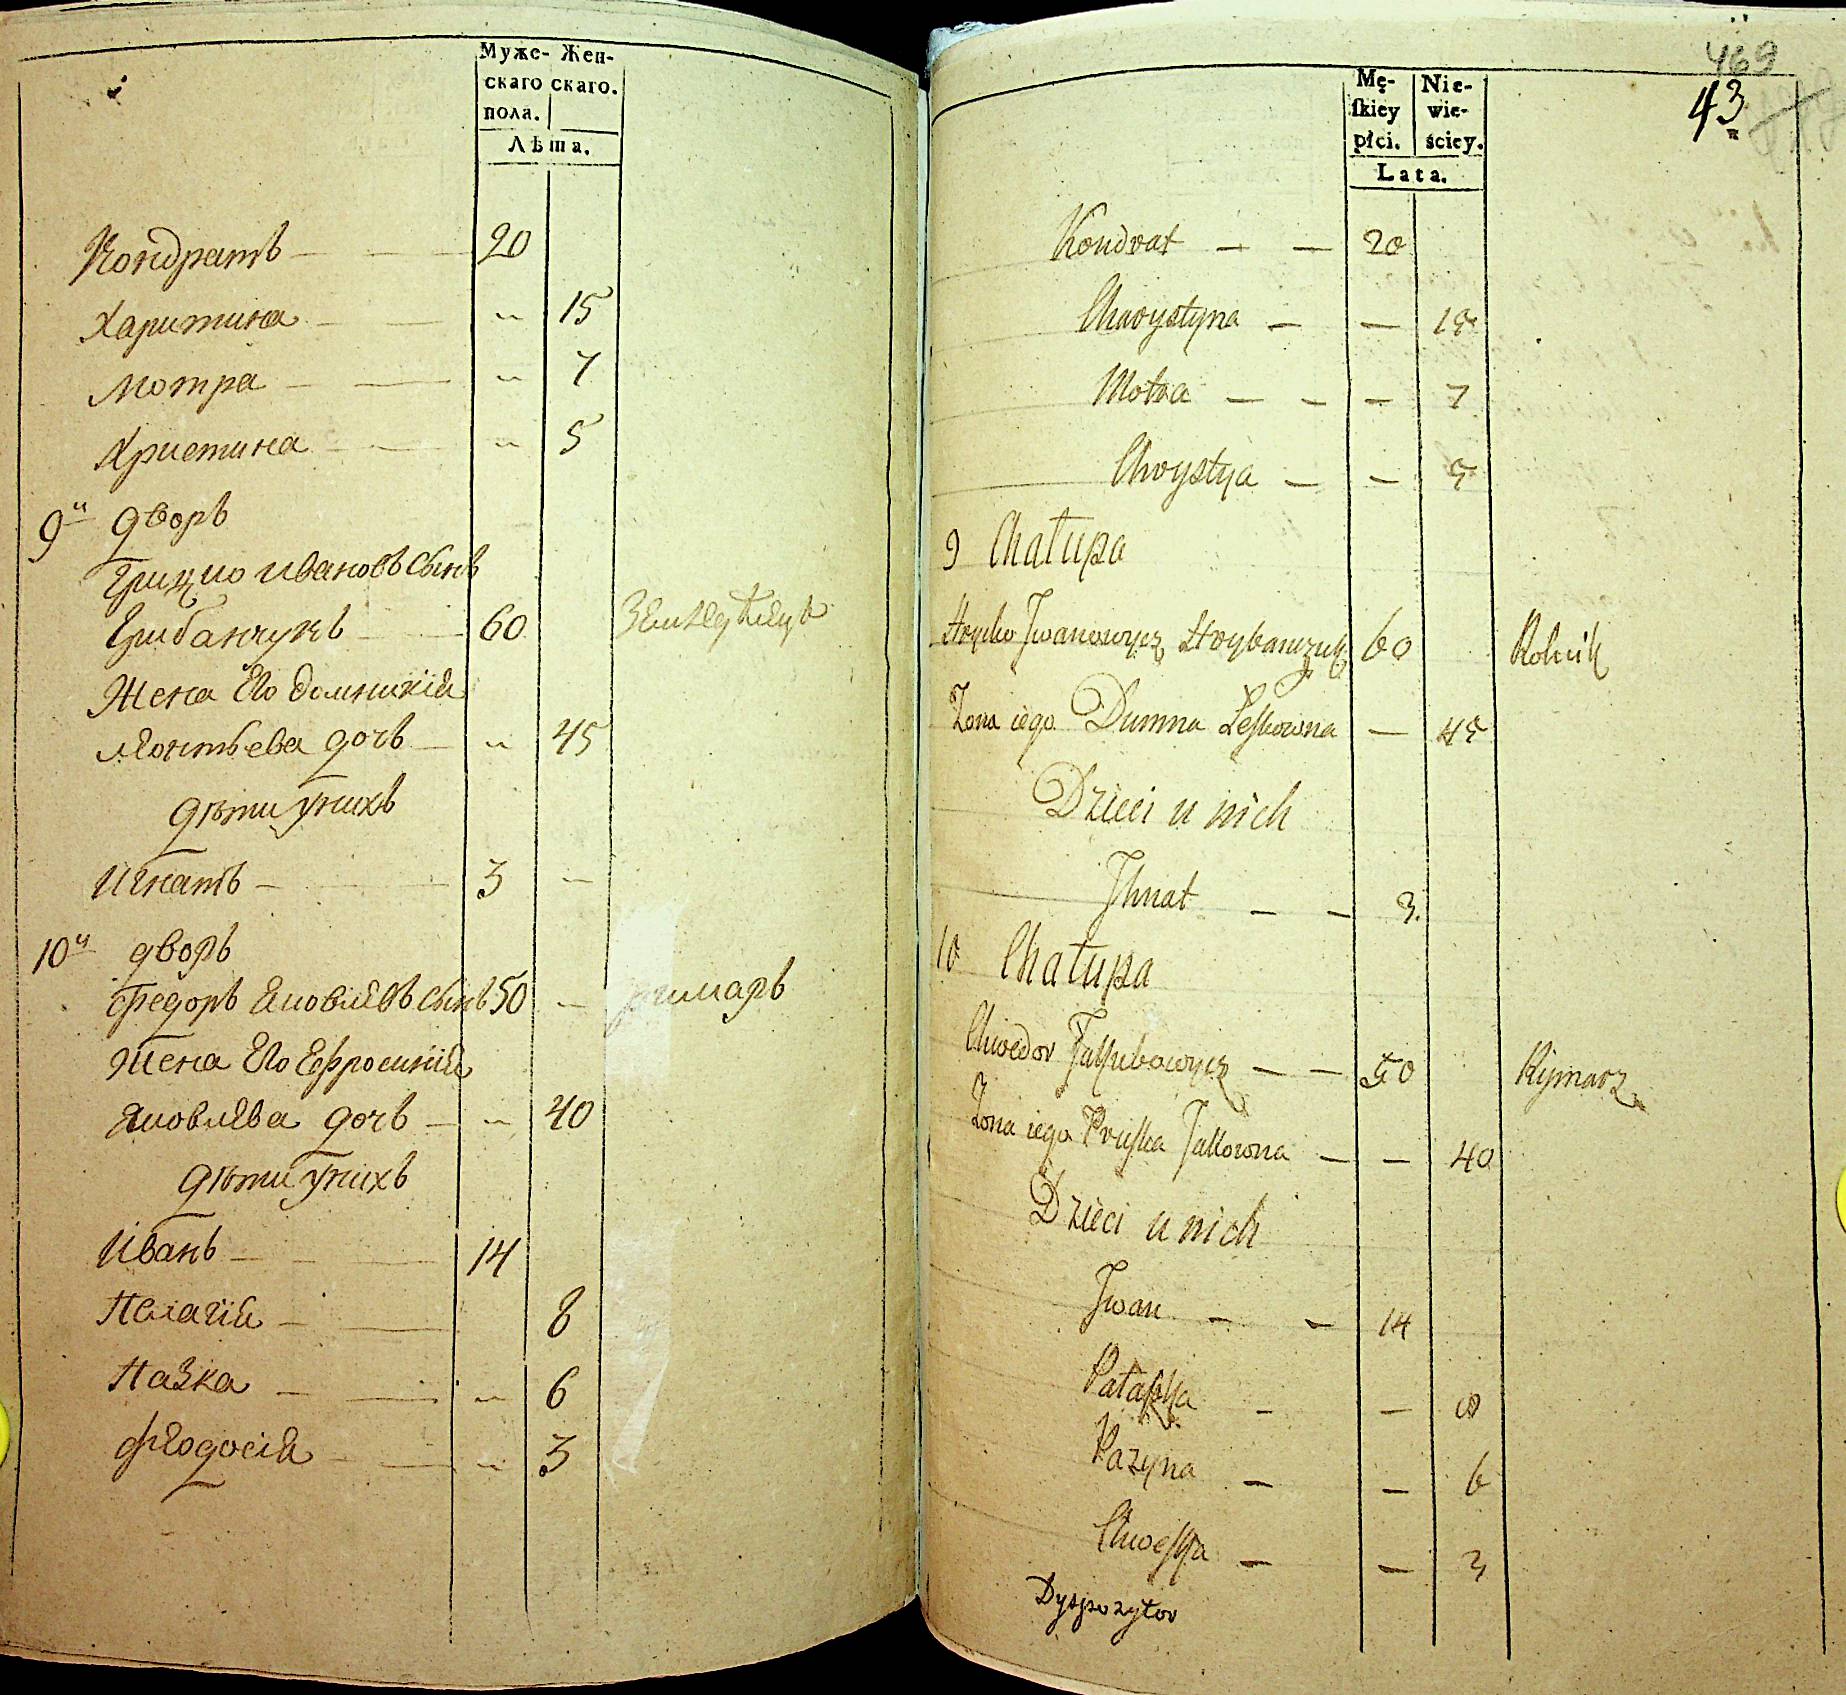 Муже- Жен-
скаго скаго.
пола.
Лѣта.
Кондратъ 20
Харитина " 15
Мотра " 7
Христина " 5
9й дворъ
Грицко Ивановъ сынъ
Грибанчукъ 60 Земледѣлецъ
Жена Его Домникія
Леонтьева дочь " 45
дѣти у нихъ
Игнатъ 3 —
10й дворъ
Федоръ Яковлевъ сынъ 50 — римаръ
Жена Его Ефросинія
Яковлева дочь " 40
дѣти у нихъ
Иванъ 14
Пелагія 8
Пазка " 6
Феодосія " 3
469
43
Mę- Nie-
ſkiey wie-
płci. ściey.
Lata.
Kondrat — — 20
Charystyna — — 15
Motra — — — 7
Chrystya — — 5
9 Chałupa
Hrycko Iwanowycz Hrybanczuk 60 Rolnik
Zona iego Dumna Leskowna — 45
Dzieci u nich
Ihnat — — 3.
10 Chałupa
Chwedor Jakubowycz — — 50 Rymarz
Zona iego Pruska Jakowna — — 40
Dzieci u nich
Jwan — — 14
Pałaſzka — — 8
Pazyna — — 6
Chweſka — — 3
Dyspozytor